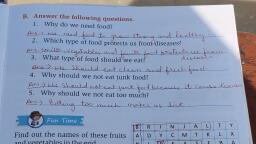 B. Answer the following questions.
1. Why do we need food?
Ans. We need food to grow strong and healthy
2. Which type of food protects us from diseases?
Ans. vegetables and fruits food protects us from
diseases.
3. What type of food should we eat?
Ans. We should eat clean and fresh food
4. Why should we not eat junk food?
Ans. We should not eat junk food because it
5. Why should we not eat too much?
Ans. Eating too much makes us
Fun Time
Find out the names of these fruits
and vegetables in the end
B R I N J A L T Y
A D Y C M T K L X